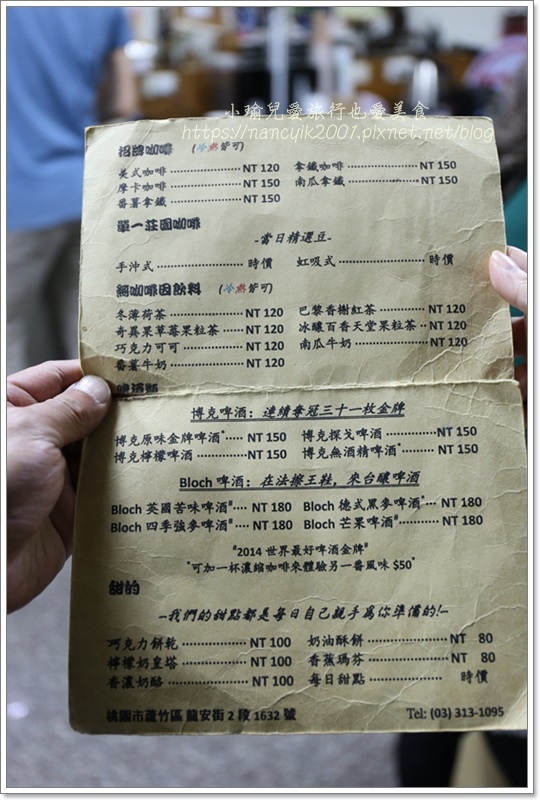 小瑜兒愛旅行也愛美食
https://nancylk2001.pixnet.net/blog
招牌咖啡 (冷熱皆可)
美式咖啡 NT 120 拿鐵咖啡 NT 150
摩卡咖啡 NT 150 南瓜拿鐵 NT 150
番薯拿鐵 NT 150
單一莊園咖啡
-當日精選豆-
手沖式 時價 虹吸式 時價
無咖啡因飲料 (冷熱皆可)
冬薄荷茶 NT 120 巴黎香榭紅茶 NT 120
奇異果草莓果粒茶 NT 120 冰釀百香天堂果粒茶 NT 120
巧克力可可 NT 120 南瓜牛奶 NT 120
番薯牛奶 NT 120
博克啤酒: 連續奪冠三十一枚金牌
博克原味金牌啤酒* NT 150 博克探戈啤酒 NT 150
博克檸檬啤酒 NT 150 博克無酒精啤酒* NT 150
Bloch 啤酒: 在法擦王鞋, 來台釀啤酒
Bloch 英國苦味啤酒# NT 180 Bloch 德式黑麥啤酒* NT 180
Bloch 四季強麥啤酒# NT 180 Bloch 芒果啤酒# NT 180
#2014 世界最好啤酒金牌#
*可加一杯濃縮咖啡來體驗另一番風味 $50*
甜的
—我們的甜點都是每日自己親手為你準備的!—
巧克力餅乾 NT 100 奶油酥餅 NT 80
檸檬奶皇塔 NT 100 香蕉瑪芬 NT 80
香濃奶酪 NT 100 每日甜點 時價
桃園市蘆竹區 龍安街 2 段 1632 號 Tel: (03) 313-1095